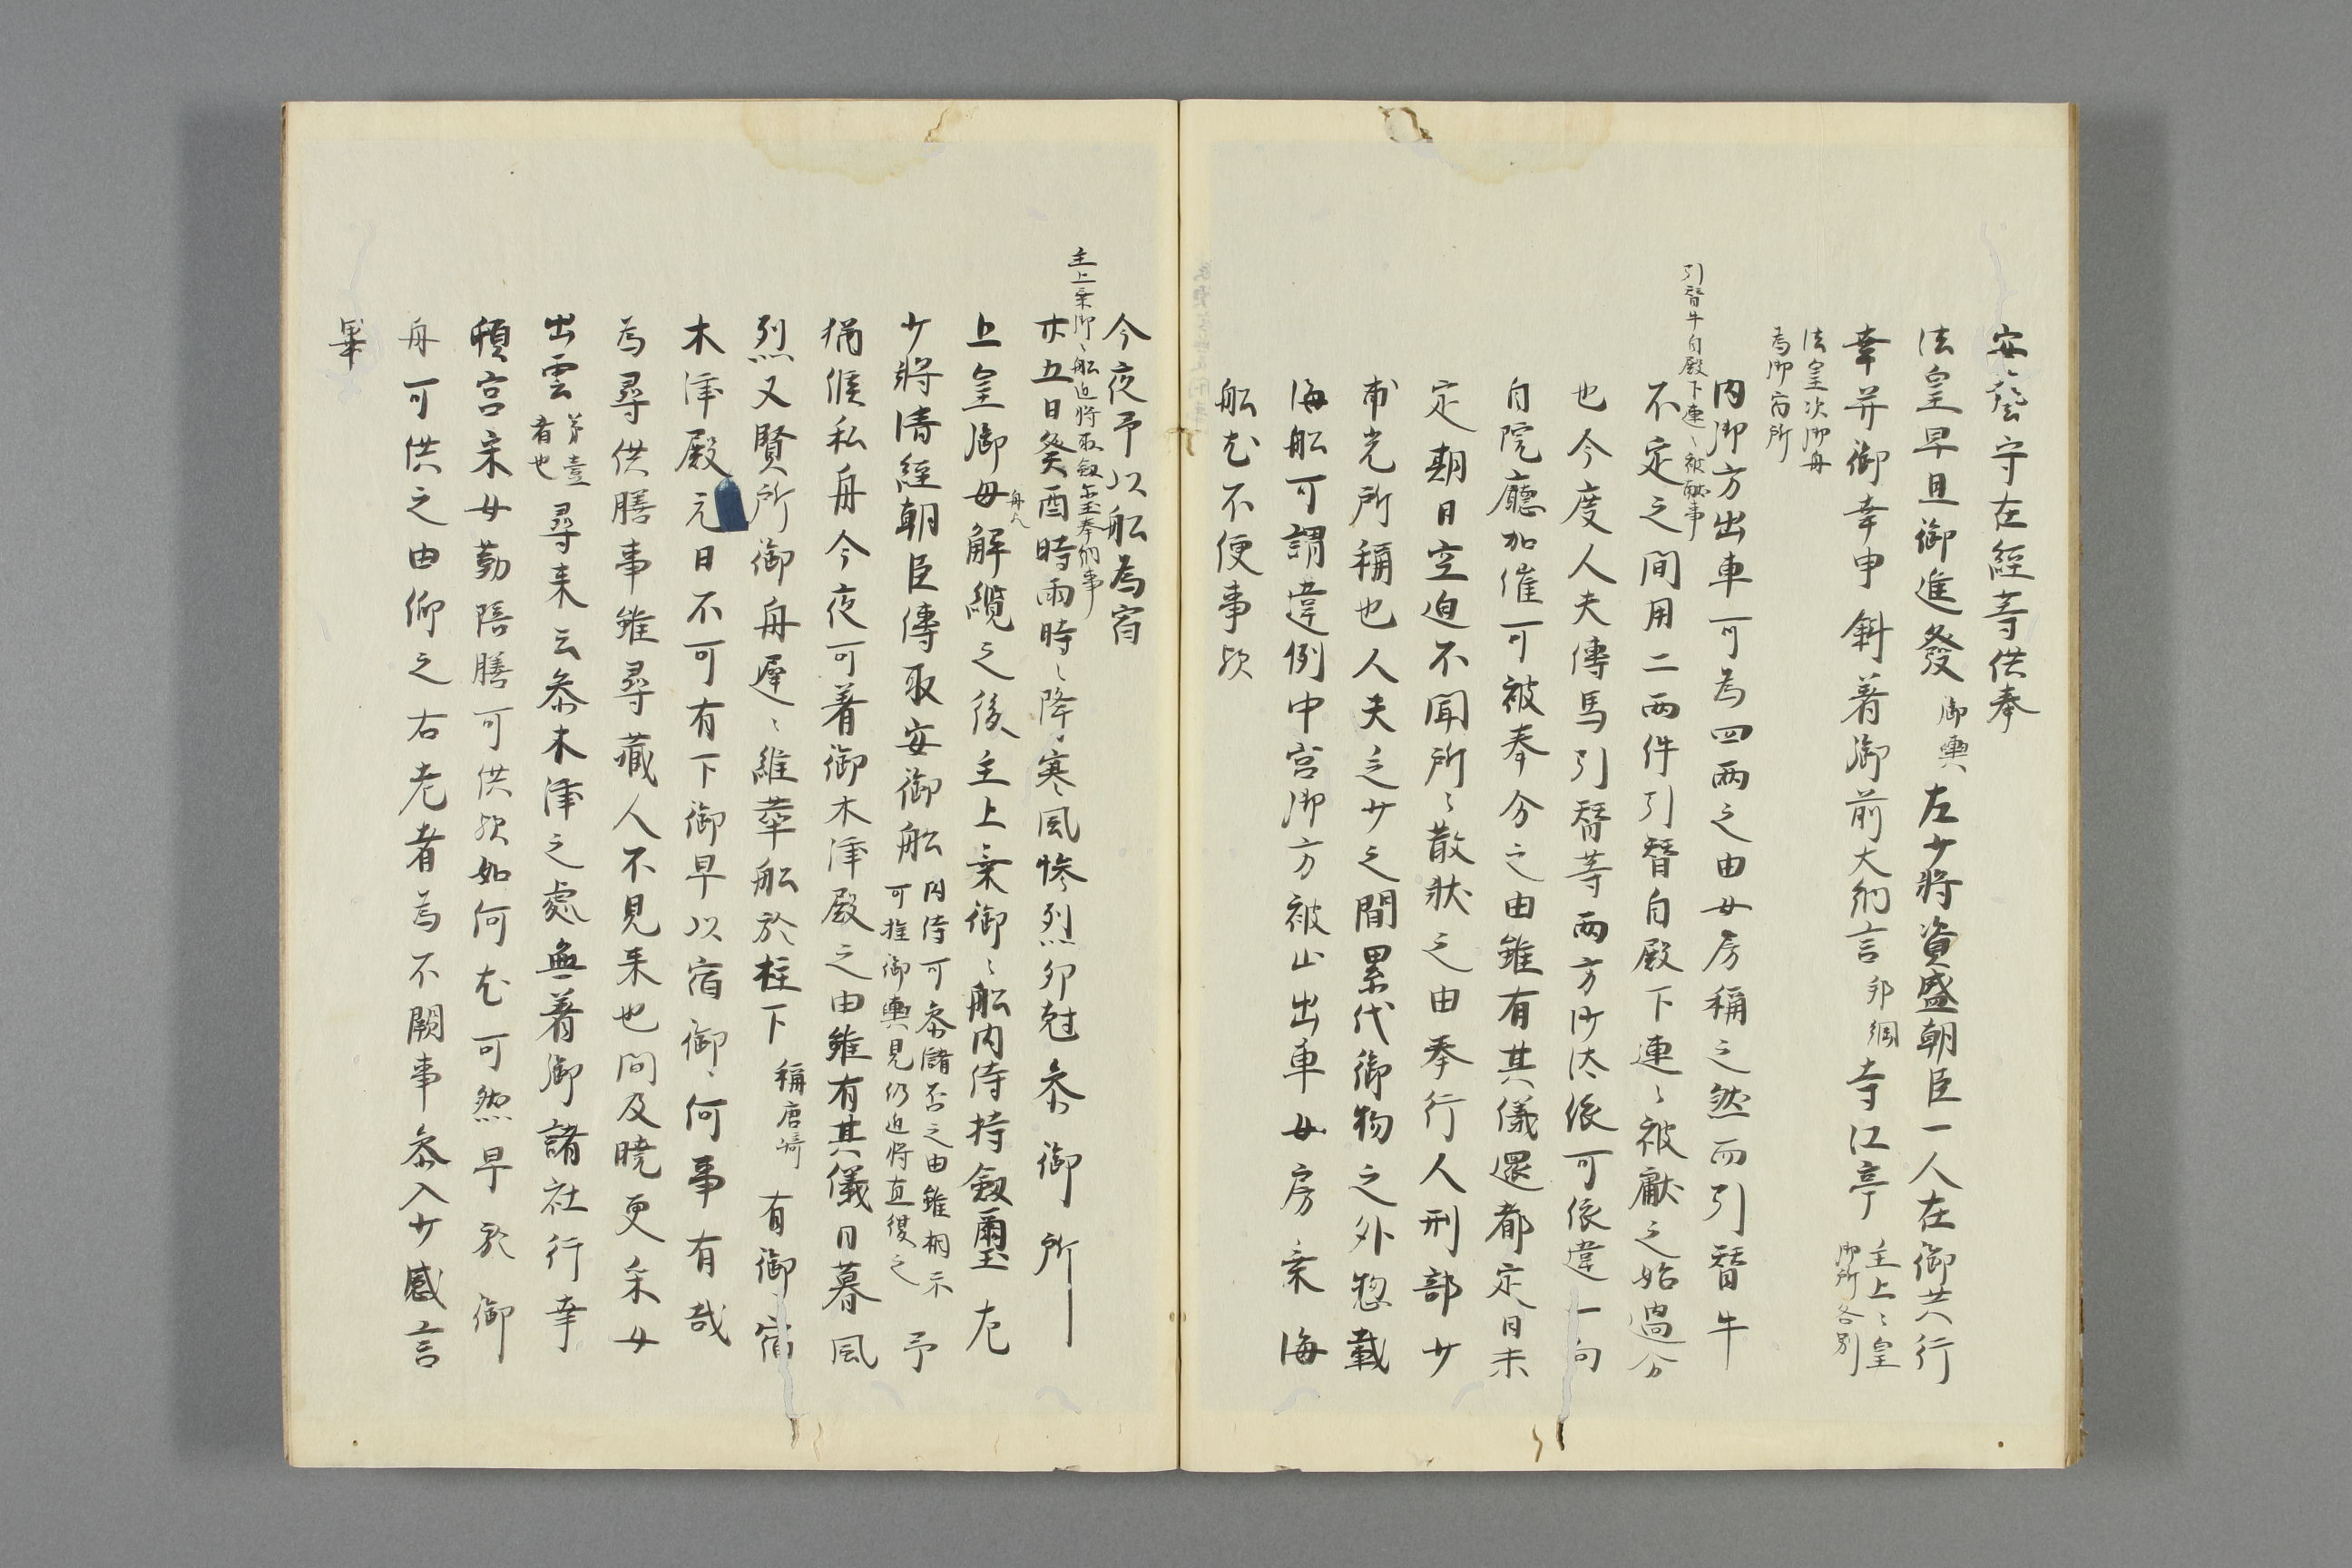 安藝守在経等供奉
法皇早旦御進發御輿左少將資盛朝臣一人在御共行
幸并御幸申斜着御前大納言邦綱寺江亭主上〻皇御所各別
法皇次御舟為御宿所
内御方出車可為四両之由女房稱之然而引替牛
引替牛自殿下連〻被献事
不定之間用二両件引替自殿下連〻被献之始過分
也今度人夫傳馬引替等両方沙汰依可依違一向
自院廳加催可被奉分之由雖有其儀還都定日未
定期日空迫不聞所〻散状之由奉行人刑部少
甫光所稱也人夫之少之間累代御物之外惣載
海船可謂違例中宮御方被止出車女房乗海
船尤不便事欤
今夜予以船為宿
主上乗御〻船近將取劔璽奉納事
廿五日癸酉時雨時〻降寒風惨烈卯尅参御所
上皇御母舟人解纜之後主上乗御〻船内侍持劔璽左
少將清經朝臣傳取安御船内侍可参儲否之由雖相示可推御輿見仍近將直復之予
猶候私舟今夜可着御木津殿之由雖有其儀日暮風
烈又賢所御舟遅〻維葦船於柱下稱唐崎有御宿
木津殿元日不可有下御早以宿御〻何事有哉
為尋供膳事雖尋蔵人不見来也間及曉更采女
出雲第壹者也尋来云参木津之處無着御諸社行幸
頓宮采女勤陪膳可供欤如何尤可然早於御
舟可供之由仰之右老者為不闕事参入少感言
畢